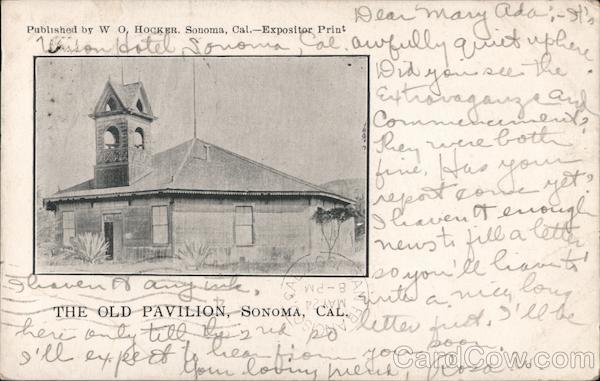 Published by W. O. HOCKER. Sonoma, Cal.—Expositor Print
Union Hotel, Sonoma, Cal.
Dear Mary Ada:- It's
awfully quiet up here
Did you see the
Extravaganza and
Commencement?
They were both
fine. Has your
report come yet?
I haven't enough
news to fill a letter
so you'll have to
write a nice long
letter first. I'll be
I haven't any ink.
THE OLD PAVILION, SONOMA, CAL.
here only till the 2nd so
I'll expect to hear from you soon.
Your loving friend, Rosa
MAY 24
8-PM
CardCow.com